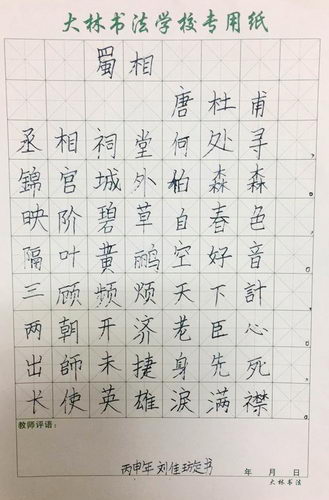 大林书法学校专用纸
蜀相
唐杜甫
丞相祠堂何处寻
錦官城外柏森森
映阶碧草自春色
隔叶黄鹂空好音
三顾频烦天下計
两朝开济老臣心
出師未捷身先死
长使英雄淚满襟
教师评语：
丙申年 刘佳 书
年 月 日
大林书法